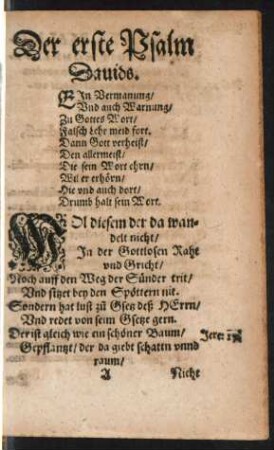 Der erste Psalm
Dauids.
EIn Vermanung/
Vnd auch Warnung/
Zu Gottes Wort/
Falsch Lehr meid fort.
Dann Gott verheist/
Den allermeist/
Die sein Wort ehrn/
Wil er erhörn/
Hie vnd auch dort/
Drumb halt sein Wort.
WOl diesem der da wan-
delt nicht/
In der Gottlosen Raht
vnd Gricht/
Noch auff den Weg der Sünder trit/
Vnd sitzet bey den Spöttern nit.
Sondern hat lust zů Gsetz deß HErrn/
Vnd redet von seim Gsetze gern.
Der ist gleich wie ein schöner Baum/ Jere:
Gepflantzt/ der da giebt schattn vnnd
raum/
A Nicht